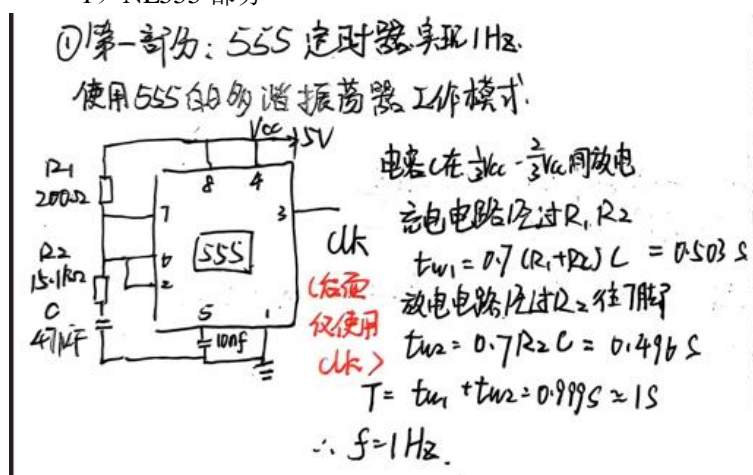 ①第一部分：555 定时器实现1Hz.
使用555的多谐振荡器工作模式.
Vcc 5V
R1
200Ω
8 4
7
3
R2
15.1kΩ
6
555
2
C
47μF
5 1
10nf
clk
(后面
仅使用
clk)
电容C在⅓Vcc-⅔Vcc间放电
充电电路经过R1, R2
tw1=0.7(R1+R2)C = 0.503 S
放电电路经过R2往7脚
tw2=0.7R2C=0.496 S
T= tw1+tw2=0.999S≈1S
∴ f=1Hz.